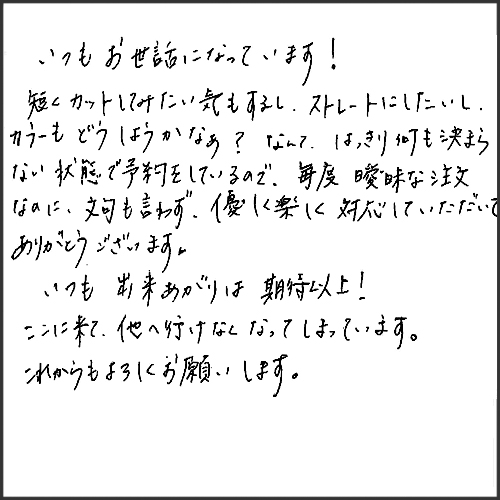 いつもお世話になっています！
短くカットしてみたい気もするし、ストレートにしたいし、
カラーもどうしようかなぁ？なんて、はっきり何も決まら
ない状態で予約をしているので、毎度曖昧な注文
なのに、文句も言わず、優しく楽しく対応していただいて
ありがとうございます。
いつも出来あがりは期待以上！
ここに来て、他へ行けなくなってしまっています。
これからもよろしくお願いします。